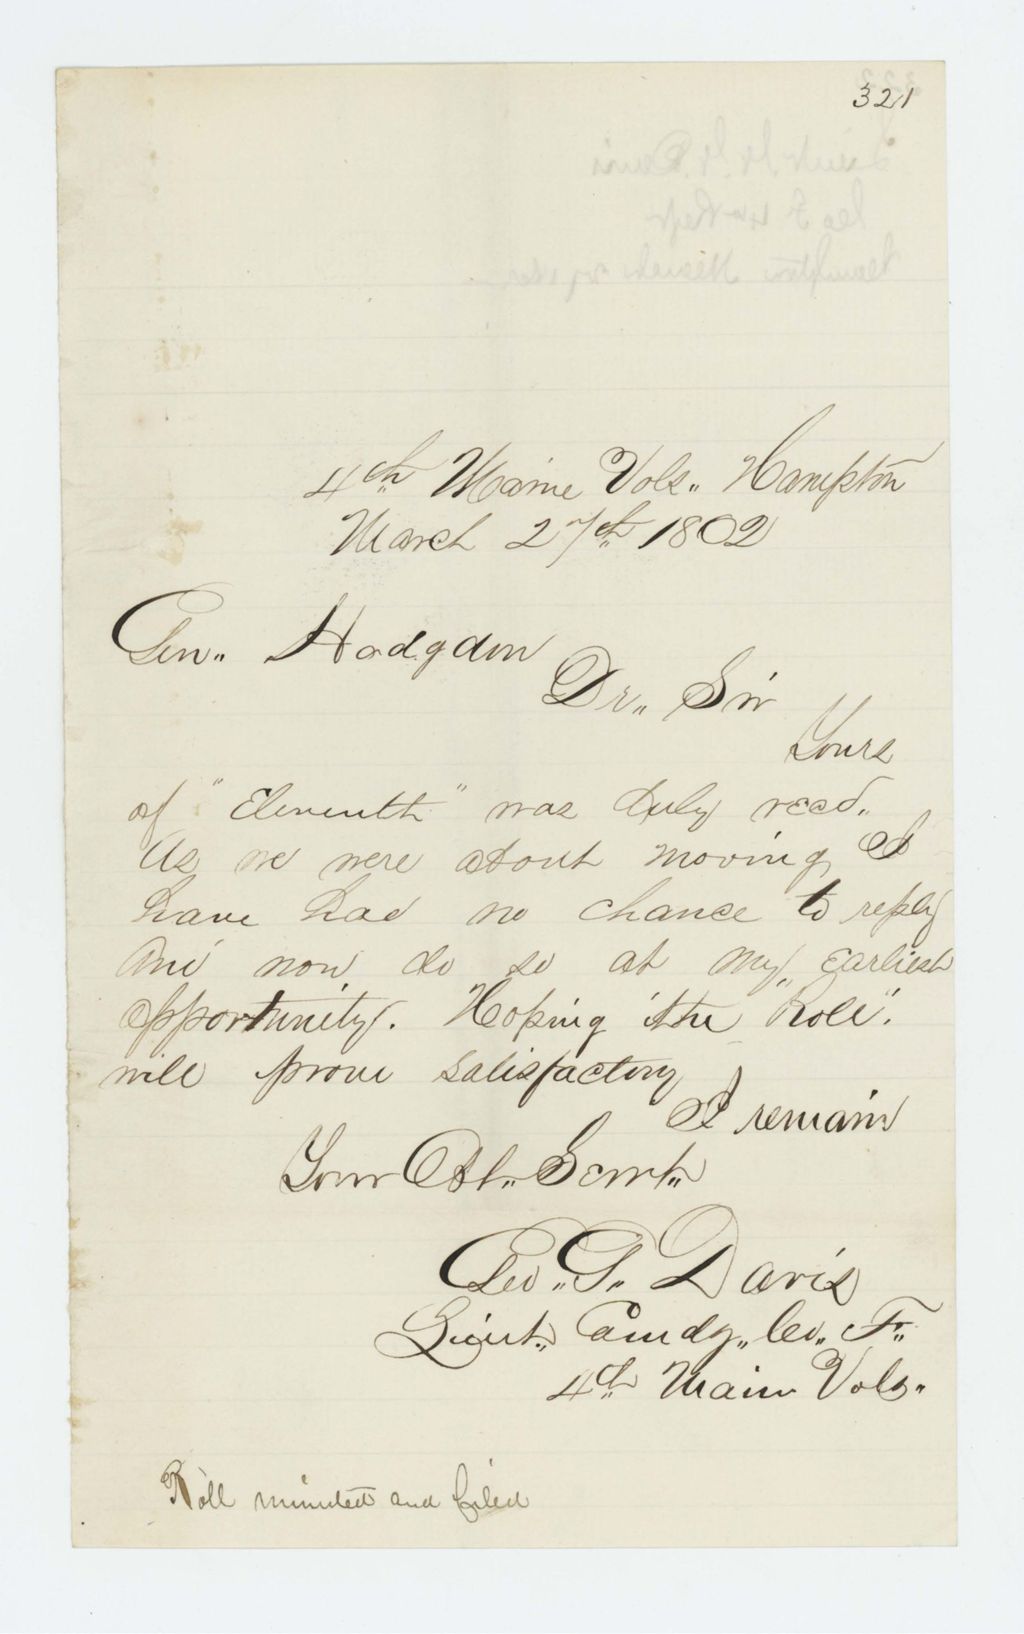 321
4th Maine Vols,, Hampton
March 27th 1862
Gen,, Hodgdon
Dr,, Sir
Yours
of "Eleventh" was duly recd,,
As we were about moving, I
have had no chance to reply
And now do so at my,, earliest
opportunity. Hoping "the Role".
will prove satisfactory
I remain
Your Obt,, Servt,,
Geo,, G,, Davis
Lieut,, Comdg,, Co,, F,,
4th Maine Vols,,
Roll minuted and filed